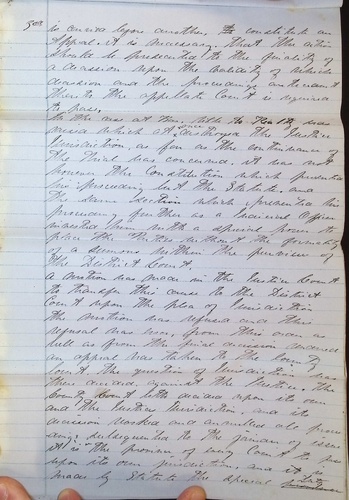 is carried before another, to constitute an
appeal. it is necessary that the action
should be presented to the quality of
a decision upon the validity of which
decision and the proceedings antecedent
thereto the appellate Court is required
to pass.
In the case at bar, title to Realty was
which at once the Justice
Jurisdiction, as far as the continuance of
the trial was concerned. it was not
however the Constitution which prevented
his proceeding but the Statute. and
the same Section which prevented his
proceeding further as a Judicial Officer
invested him with a special power to
place the Parties without the formality
of a Summons within the purview of
the District Court.
A motion was made in the Justice Court
to transfer this cause to the District
Court upon the plea of Jurisdiction
the motion was refused and this
refusal was been, from this order as
well as from the final decision
an appeal was taken to the County
Court. the question of Jurisdiction was
there decided against the Justice. The
County Court both decided upon its own
and the Justices Jurisdiction, and its
decision and annulled all
subsequent to the of issue
it is the province of every Court to pass
upon its own jurisdiction, and it is
made by Statute the special